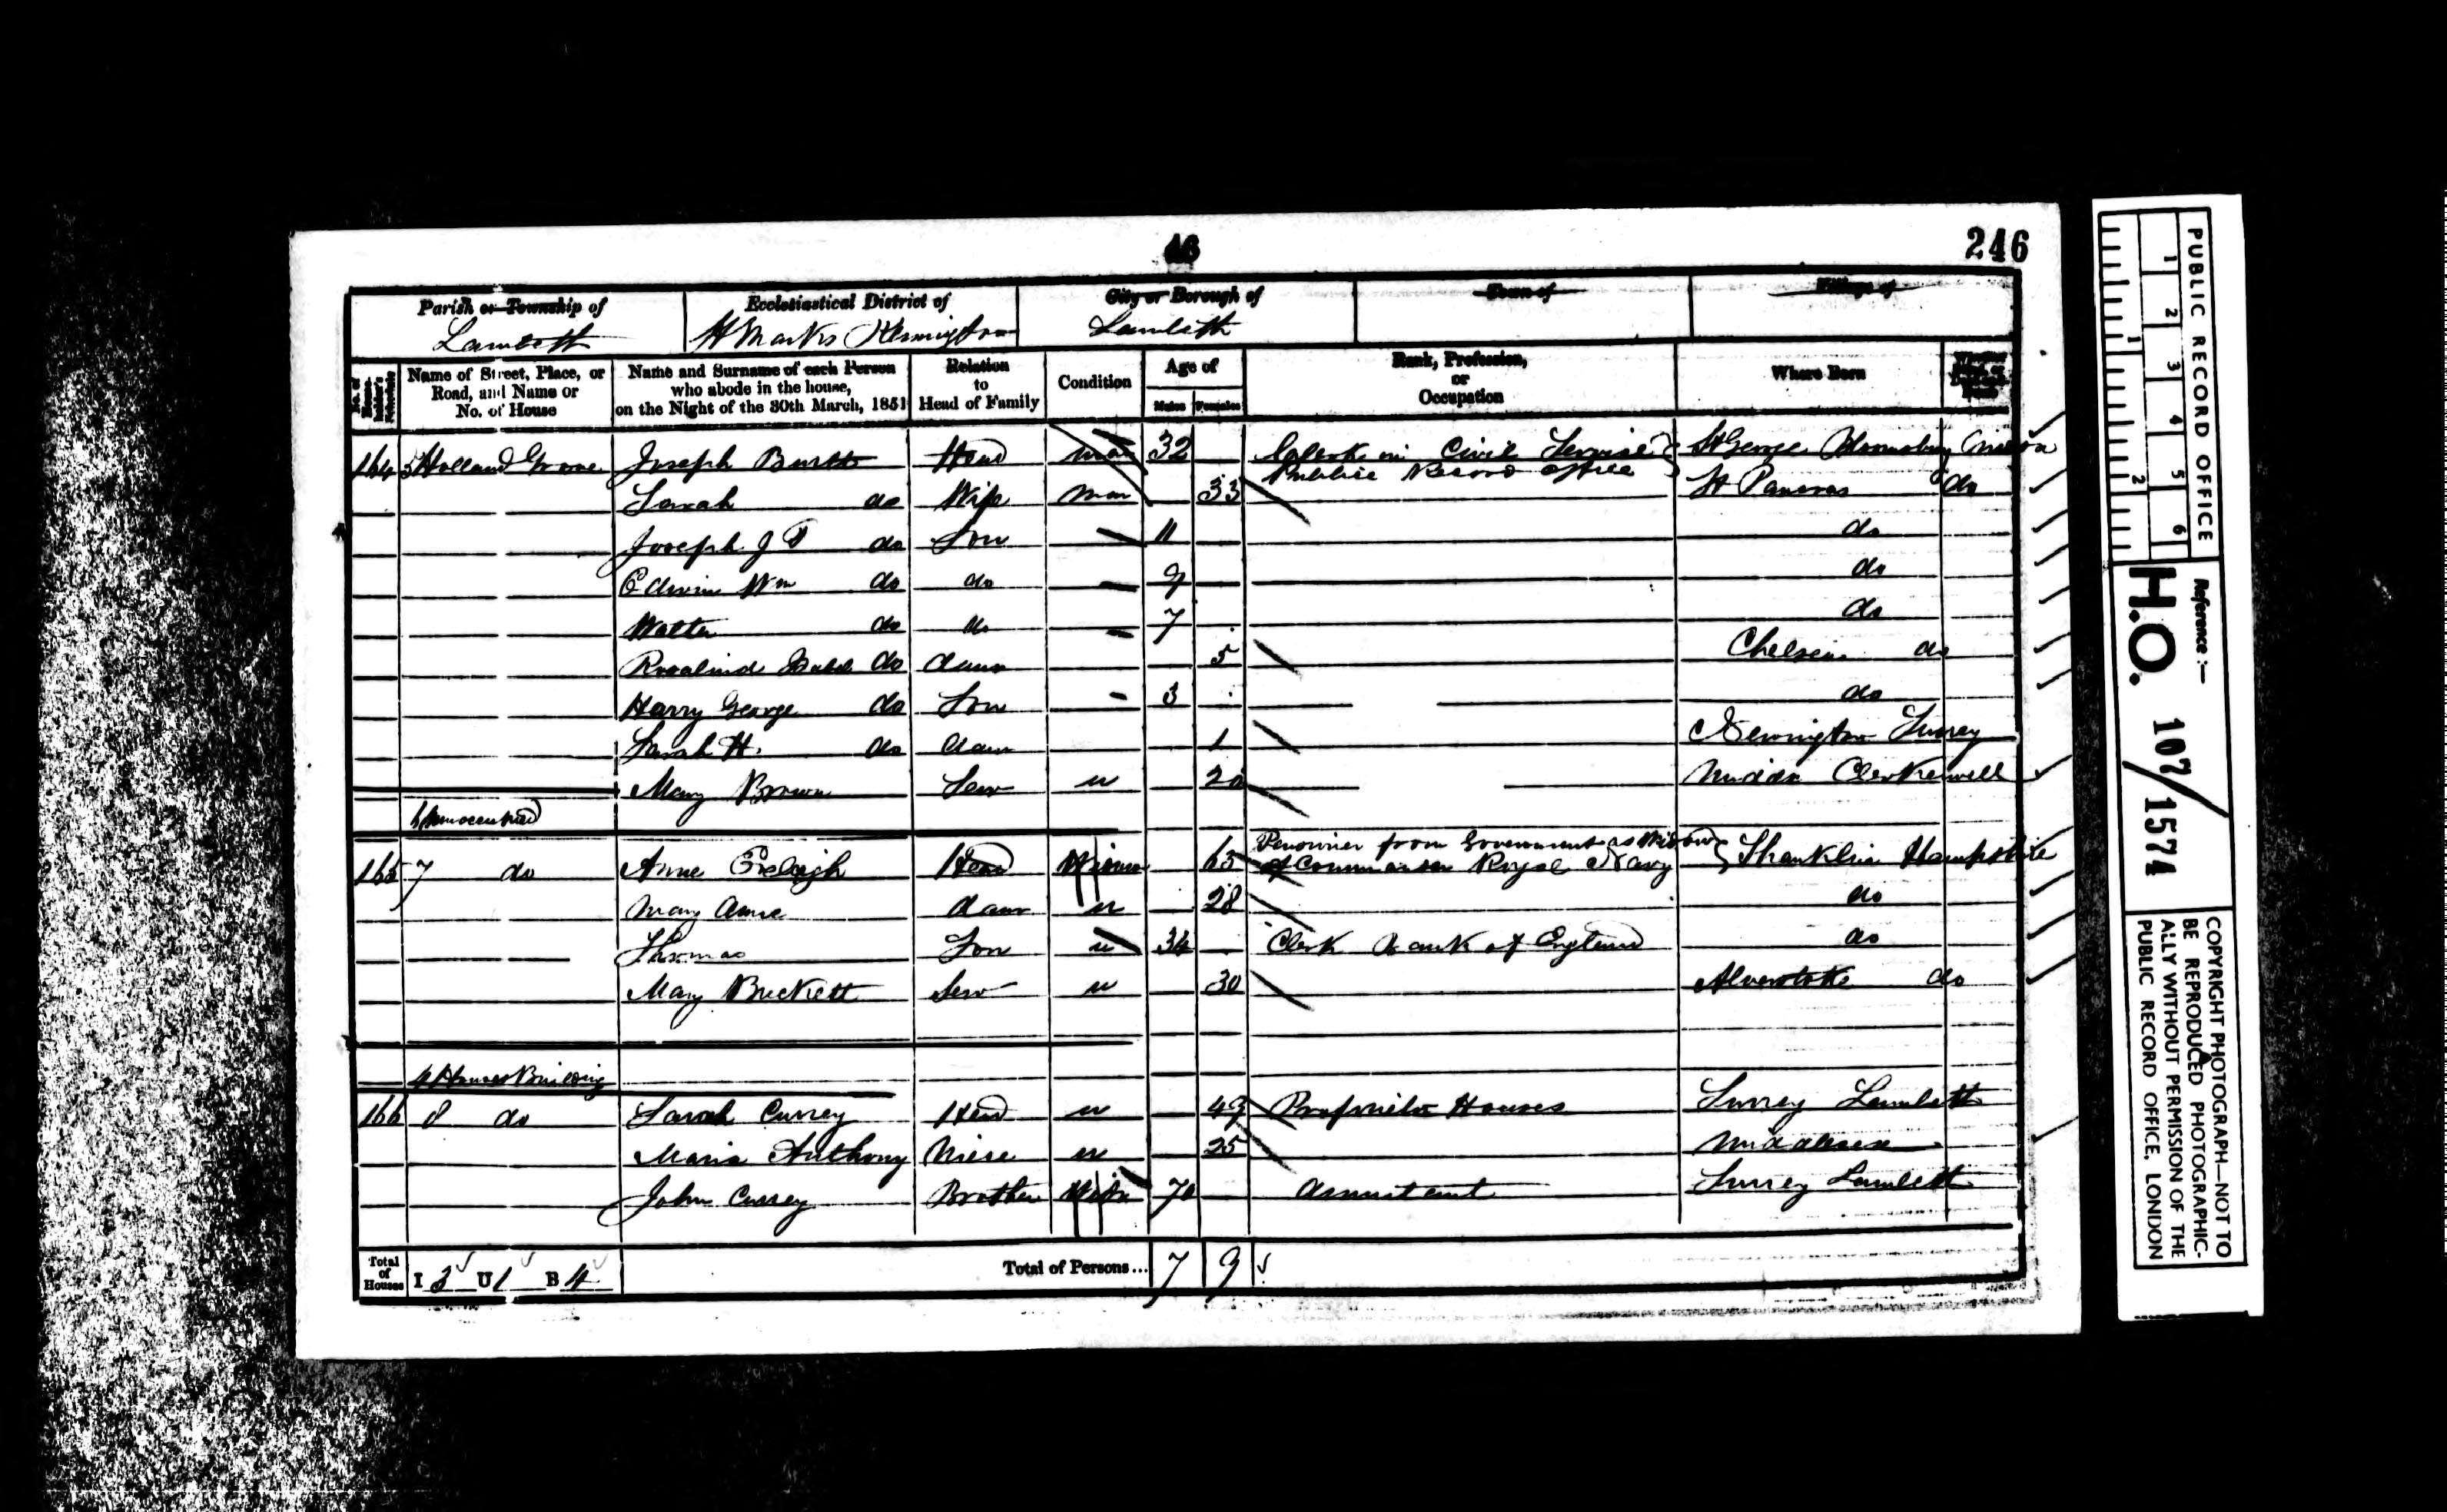 46
246
Parish or Township of
Lambeth
Ecclesiastical District of
St Marks Kennington
City or Borough of
Lambeth
Town of
Village of
Name of Street, Place, or Road, and Name or No. of House
Name and Surname of each Person who abode in the house, on the Night of the 30th March, 1851
Relation to Head of Family
Condition
Age of
Males Females
Rank, Profession, or Occupation
Where Born
164 5 Holland Grove Joseph Burtt Head Mar 32 Clerk in Civil Service Public Record Office St George Bloomsbury
Sarah do Wife Mar 33 St Pancras do
Joseph J do Son 11 do
Edwin Wm do do 9 do
Walter do do 7 do
Rosalind Isabel do daur 5 Chelsea do
Harry George do Son 3 do
Sarah H. do daur 1 Newington Surrey
Mary Brown Serv u 20 Middx Clerkenwell
6 Unoccupied
165 7 do Anne Head Widow 65 Pensioner from Government as Widow of Commander Royal Navy Shanklin Hampshire
Mary Anne daur u 28 do
Thomas Son u 34 Clerk Bank of England do
Mary Beckett Serv u 30 Alverstoke do
4 Houses Building
166 8 do Sarah Currey Head u 49 Proprietor Houses Surrey Lambeth
Maria Anthony Niese u 25 Middlesex
John Currey Brother Widr 70 Annuitant Surrey Lambeth
Total of Houses I 3 U 1 B 4 Total of Persons... 7 9
PUBLIC RECORD OFFICE
1 2 3 4 5 6
1 2
Reference :-
H.O. 107/1574
COPYRIGHT PHOTOGRAPH—NOT TO
BE REPRODUCED PHOTOGRAPHIC-
ALLY WITHOUT PERMISSION OF THE
PUBLIC RECORD OFFICE, LONDON